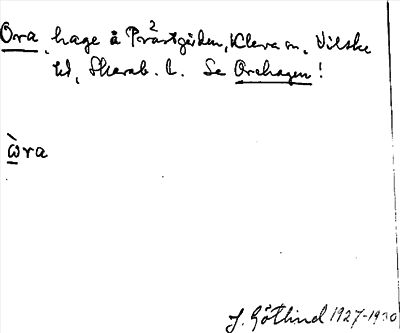 Ora, hage å Prästgården, Kleva sn, Vilske
hd, Skarab. l. Se Orehagen!
2
ὼra
J. Götlind 1927-1930